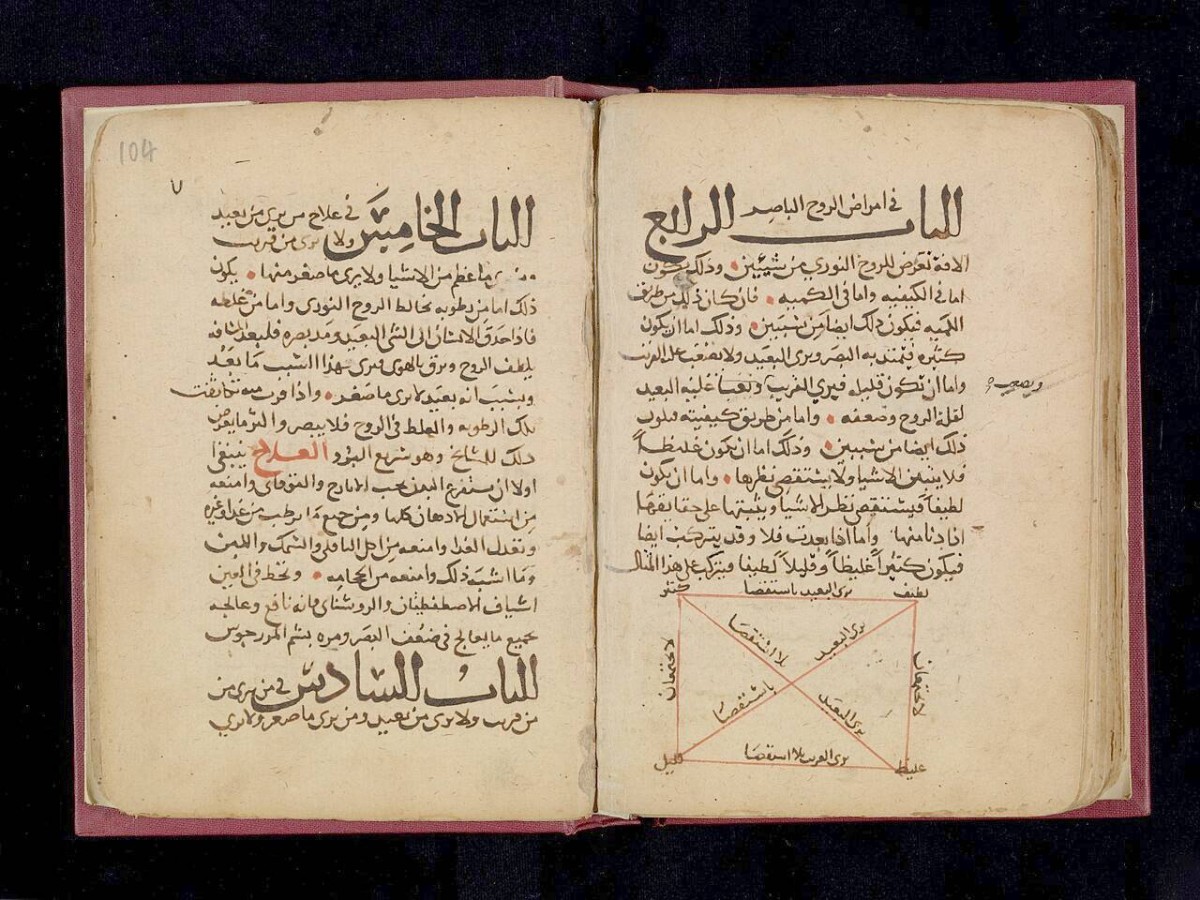 الباب الرابع في امراض الروح الباصر
الافة تعرض للروح النوري من شيئين وذلك يكون
اما في الكيفيه واما في الكميه فان كان ذلك من طريق
الكميه فيكون ذلك ايضا من شيئين وذلك اما ان يكون
كثيره فيمتد به البصر ويرى البعيد ولا يصعب عليه القريب
واما ان تكون قليله فيري القريب ويصعب عليه البعيد
لقلة الروح وضعفه واما من طريق كيفيته فيكون
ذلك ايضا من شيئين وذلك اما ان يكون غليظاً
فلا يتبين الاشيا ولا يستقصي نظرها واما ان يكون
لطيفاً فيستقصي نظر الاشيا ويثبتها على حقايقها
اذا دنا منها واما اذا بعدت فلا وقد يتركب ايضا
فيكون كثيراً غليظاً وقليلاً لطيفا ويتركب على هذا المثال
ويصعب
لطيف يرى البعيد باستقصا كثير
يرى البعيد باستقصا
يرى البعيد بلا استقصا
لا يجتمعان
لا يجتمعان
غليظ يرى القريب بلا استقصا قليل
104
٧
الباب الخامس في علاج من يرى من بعيد
ولا يرى من قريب
ما عظم من الاشيا ولا يرى ما صغر منها يكون
ذلك اما من رطوبه تخالط الروح النوري واما من غلظه
فاذا حدق الانسان الى الشي البعيد ومد بصره فلبعد المسافه
يلطف الروح ويرق بالهوى فيرى بهذا السبب ما بعد
وبسبب انه بعيد لا يرى ما صغر واذا قرب منه تكاثفت
تلك الرطوبه والغلظ في الروح فلا يبصر واكثر ما يعرض
ذلك للمشايخ وهو سريع البرو العلاج ينبغي
اولا ان يستفرغ البدن بحب الايارج والقوقاي وامنعه
من استعمال الادهان كلها ومن جميع ما يرطب من غدا وغيره
وتقلل الغدا وامنعه من اكل الباقلي والسمك واللبن
وما اشبه ذلك وامنعه من الحجامه وتحط في العين
اشياف الاصطفطيقان والروشناي فانه نافع وعالجه
بجميع ما يعالج في ضعف البصر ومره بشم المرزجوس
الباب السادس في من يرى من
من قريب ولا يرى من بعيد ومن يرى ما صغر ولا يري